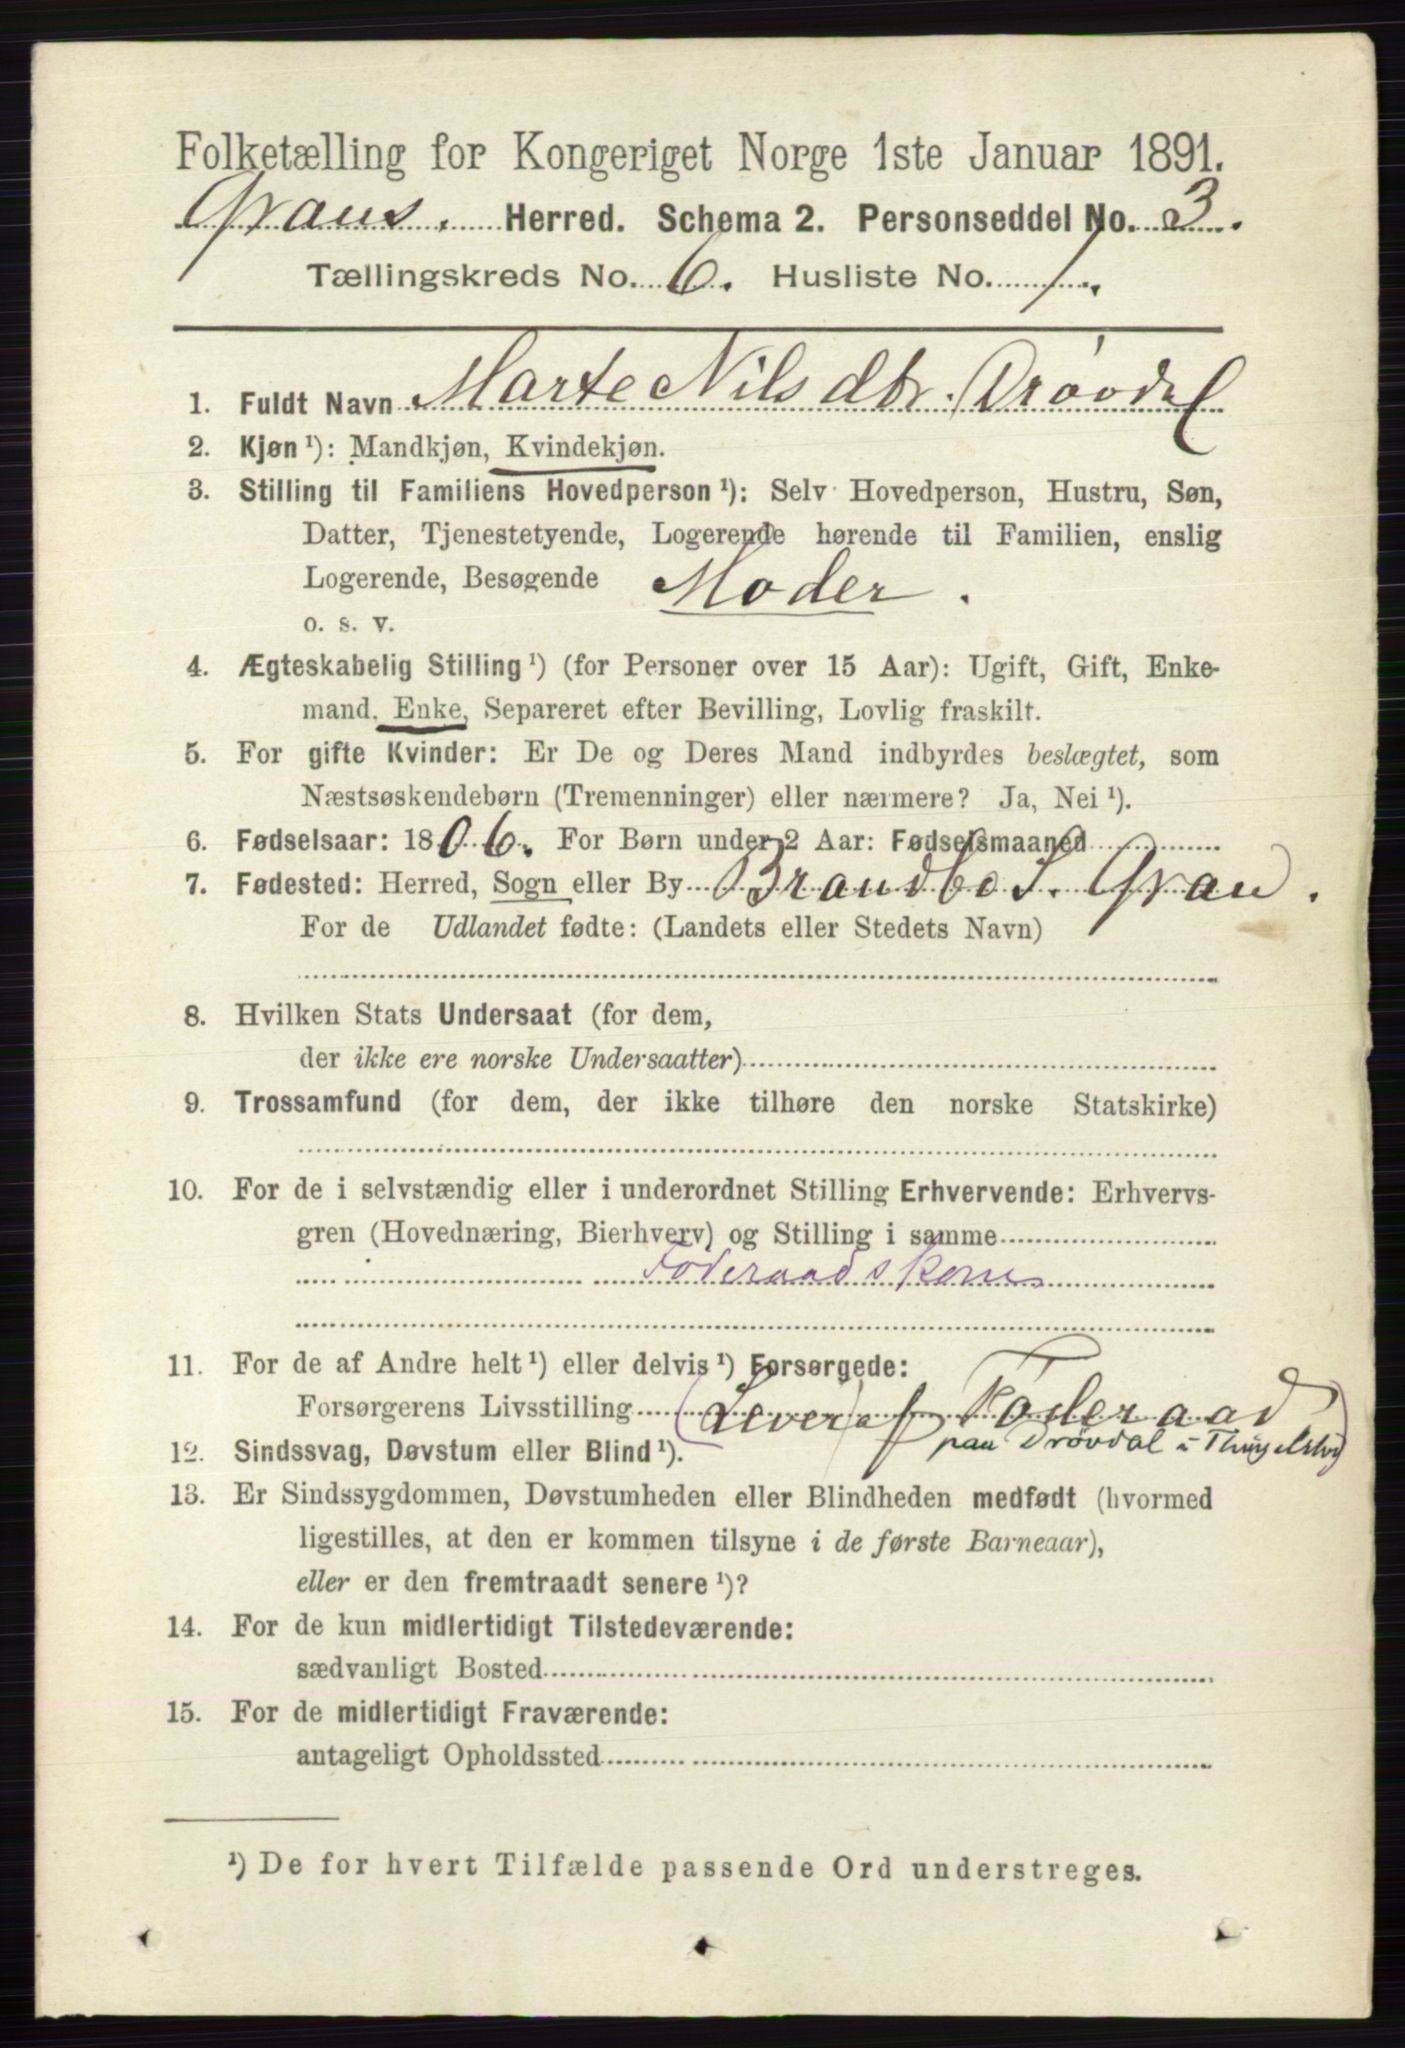 Folketælling for Kongeriget Norge 1ste Januar 1891.
Grans. Herred. Schema 2. Personseddel No. 3.
Tællingskreds No. 6. Husliste No. 1.
1. Fuldt Navn Marte Nilsdtr. Drøvdal
2. Kjøn ¹): Mandkjøn, Kvindekjøn.
3. Stilling til Familiens Hovedperson ¹): Selv Hovedperson, Hustru, Søn,
Datter, Tjenestetyende, Logerende hørende til Familien, enslig
Logerende, Besøgende Moder.
o. s. v.
4. Ægteskabelig Stilling ¹) (for Personer over 15 Aar): Ugift, Gift, Enke-
mand, Enke, Separeret efter Bevilling, Lovlig fraskilt.
5. For gifte Kvinder: Er De og Deres Mand indbyrdes beslægtet, som
Næstsøskendebørn (Tremenninger) eller nærmere? Ja, Nei ¹).
6. Fødselsaar: 1806. For Børn under 2 Aar: Fødselsmaaned
7. Fødested: Herred, Sogn eller By Brandbo S. Gran.
For de Udlandet fødte: (Landets eller Stedets Navn)
8. Hvilken Stats Undersaat (for dem,
der ikke ere norske Undersaatter)
9. Trossamfund (for dem, der ikke tilhøre den norske Statskirke)
10. For de i selvstændig eller i underordnet Stilling Erhvervende: Erhvervs-
gren (Hovednæring, Bierhverv) og Stilling i samme
Foderaadskone
11. For de af Andre helt ¹) eller delvis ¹) Forsørgede:
Forsørgerens Livsstilling (Lever) af Foderaad
paa Drøvdal i
12. Sindssvag, Døvstum eller Blind ¹).
13. Er Sindssygdommen, Døvstumheden eller Blindheden medfødt (hvormed
ligestilles, at den er kommen tilsyne i de første Barneaar),
eller er den fremtraadt senere ¹)?
14. For de kun midlertidigt Tilstedeværende:
sædvanligt Bosted
15. For de midlertidigt Fraværende:
antageligt Opholdssted
¹) De for hvert Tilfælde passende Ord understreges.